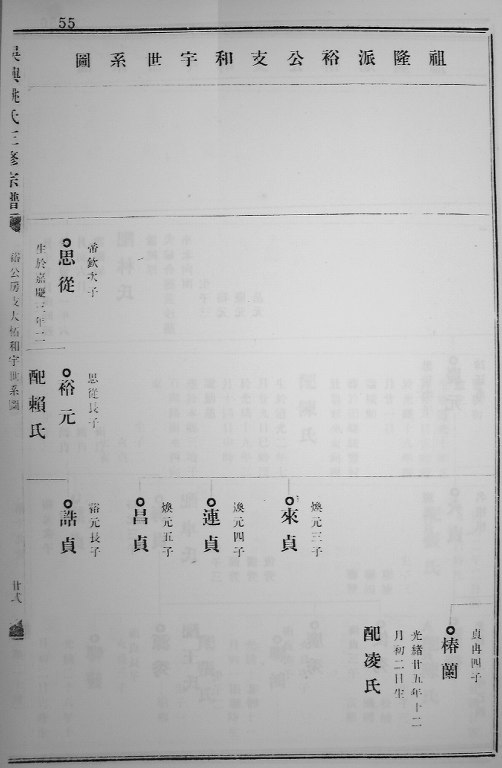 55
祖隆派裕公支和宇世系圖
貞冉四子
椿蘭
光緒廿五年十二
月初二日生
配凌氏
煥元三子
來貞
煥元四子
連貞
煥元五子
昌貞
裕元長子
誥貞
思從長子
裕元
配賴氏
帝欽次子
思從
生於嘉慶三年二
吳興姚氏三修宗譜
裕公房支大佑和宇世系圖
廿弍